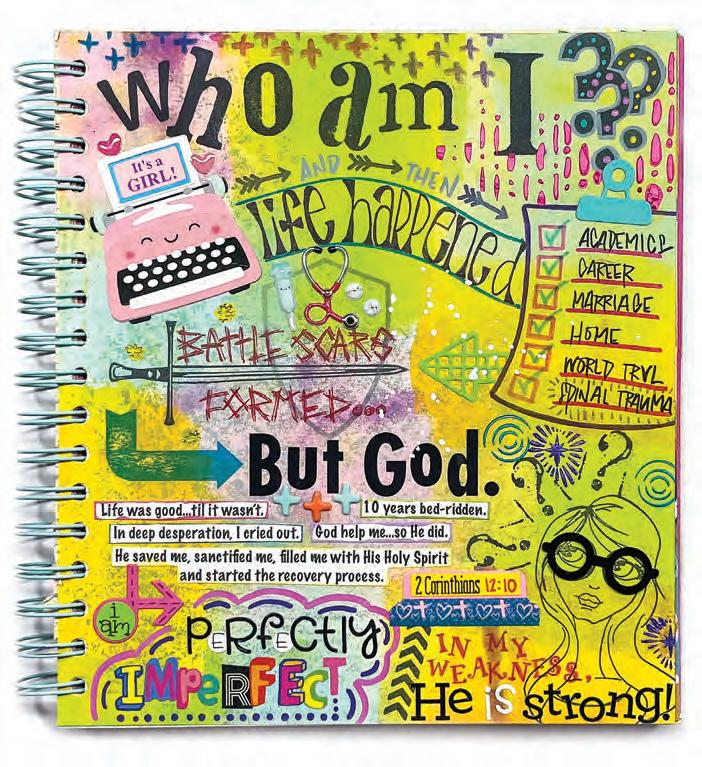 Who am I???
It's a
GIRL!
AND THEN
life happened
ACADEMICS
CAREER
MARRIAGE
HOME
WORLD TRVL
SPINAL TRAUMA
BATTLE SCARS
FORMED...
But God.
Life was good...til it wasn't. 10 years bed-ridden.
In deep desperation, I cried out. God help me...so He did.
He saved me, sanctified me, filled me with His Holy Spirit
and started the recovery process.
2 Corinthians 12:10
i
am
PERFECTLY
IMPeRFECT!
IN MY
WEAKNESS,
He is strong!